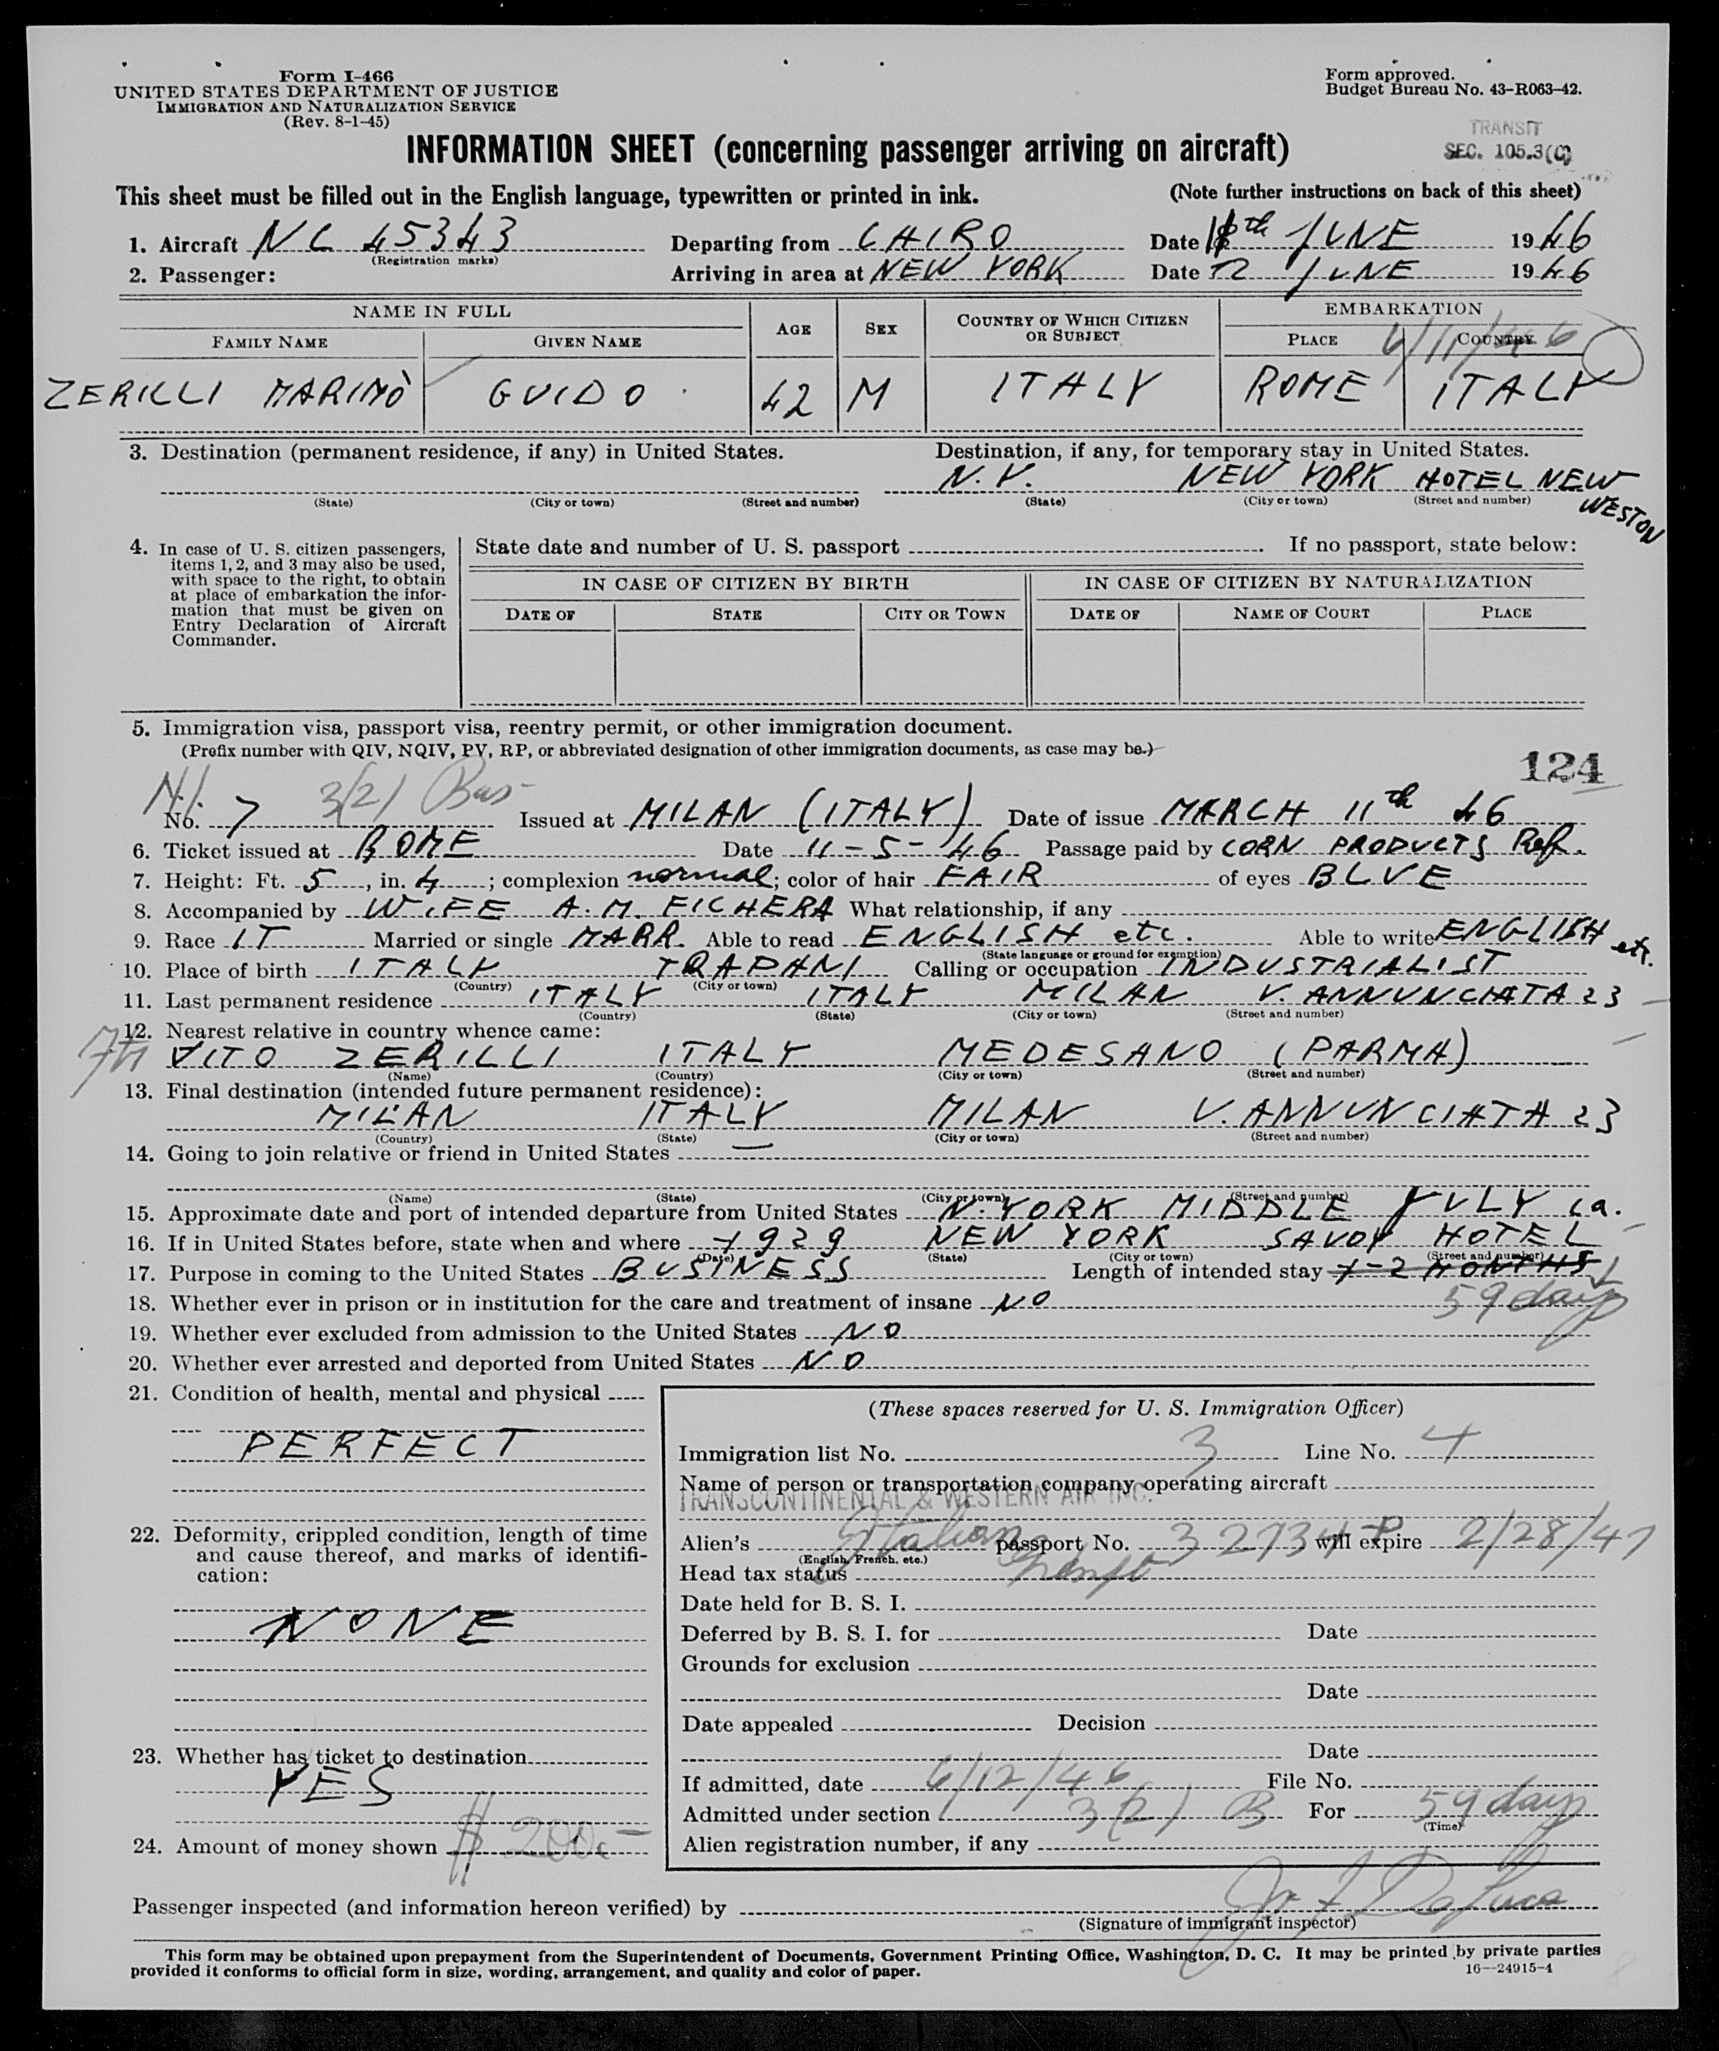 Form I-466
UNITED STATES DEPARTMENT OF JUSTICE
IMMIGRATION AND NATURALIZATION SERVICE
(Rev. 8-1-45)
Form approved.
Budget Bureau No. 43-R063-42.
TRANSIT
SEC. 105.3(C)
INFORMATION SHEET (concerning passenger arriving on aircraft)
This sheet must be filled out in the English language, typewritten or printed in ink. (Note further instructions on back of this sheet)
1. Aircraft NC 45343 Departing from CAIRO Date th JUNE 1946
(Registration marks)
2. Passenger: Arriving in area at NEW YORK Date JUNE 1946
NAME IN FULL AGE SEX COUNTRY OF WHICH CITIZEN OR SUBJECT EMBARKATION
FAMILY NAME GIVEN NAME PLACE COUNTRY
6/11/46
ZERILLI MARIMÒ GUIDO 42 M ITALY ROME ITALY
3. Destination (permanent residence, if any) in United States. Destination, if any, for temporary stay in United States.
N.Y. NEW YORK HOTEL NEW WESTON
(State) (City or town) (Street and number) (State) (City or town) (Street and number)
4. In case of U. S. citizen passengers, items 1, 2, and 3 may also be used, with space to the right, to obtain at place of embarkation the information that must be given on Entry Declaration of Aircraft Commander.
State date and number of U. S. passport . If no passport, state below:
IN CASE OF CITIZEN BY BIRTH IN CASE OF CITIZEN BY NATURALIZATION
DATE OF STATE CITY OR TOWN DATE OF NAME OF COURT PLACE
5. Immigration visa, passport visa, reentry permit, or other immigration document.
(Prefix number with QIV, NQIV, PV, RP, or abbreviated designation of other immigration documents, as case may be.)
124
3(2) Bus
No. 7 Issued at MILAN (ITALY) Date of issue MARCH 11th 46
6. Ticket issued at ROME Date 11-5-46 Passage paid by CORN PRODUCTS Ref.
7. Height: Ft. 5, in. 4; complexion normal; color of hair FAIR of eyes BLUE
8. Accompanied by WIFE A.M. FICHERA What relationship, if any
9. Race IT Married or single MARR. Able to read ENGLISH etc. Able to write ENGLISH etc.
(State language or ground for exemption)
10. Place of birth ITALY TRAPANI Calling or occupation INDUSTRIALIST
(Country) (City or town)
11. Last permanent residence ITALY ITALY MILAN V. ANNUNCIATA 23
(Country) (State) (City or town) (Street and number)
12. Nearest relative in country whence came:
VITO ZERILLI ITALY MEDESANO (PARMA)
(Name) (Country) (City or town) (Street and number)
13. Final destination (intended future permanent residence):
MILAN ITALY MILAN V. ANNUNCIATA 23
(Country) (State) (City or town) (Street and number)
14. Going to join relative or friend in United States —
(Name) (State) (City or town) (Street and number)
15. Approximate date and port of intended departure from United States N. YORK MIDDLE JULY ca.
16. If in United States before, state when and where 1929 NEW YORK SAVOY HOTEL
(Date) (State) (City or town) (Street and number)
17. Purpose in coming to the United States BUSINESS Length of intended stay 1-2 MONTHS
59 days
18. Whether ever in prison or in institution for the care and treatment of insane NO
19. Whether ever excluded from admission to the United States NO
20. Whether ever arrested and deported from United States NO
21. Condition of health, mental and physical
PERFECT
22. Deformity, crippled condition, length of time and cause thereof, and marks of identification:
NONE
23. Whether has ticket to destination
YES
24. Amount of money shown $ 200.-
(These spaces reserved for U. S. Immigration Officer)
Immigration list No. 3 Line No. 4
Name of person or transportation company operating aircraft
TRANSCONTINENTAL & WESTERN AIR INC.
Alien's Italian passport No. 32734-P will expire 2/28/47
(English, French, etc.)
Head tax status
Date held for B. S. I.
Deferred by B. S. I. for Date
Grounds for exclusion
Date
Date appealed Decision
Date
If admitted, date 6/12/46 File No.
Admitted under section 3(2) B For 59 days
(Time)
Alien registration number, if any
Passenger inspected (and information hereon verified) by
(Signature of immigrant inspector)
This form may be obtained upon prepayment from the Superintendent of Documents, Government Printing Office, Washington, D. C. It may be printed by private parties
provided it conforms to official form in size, wording, arrangement, and quality and color of paper.
16—24915-4